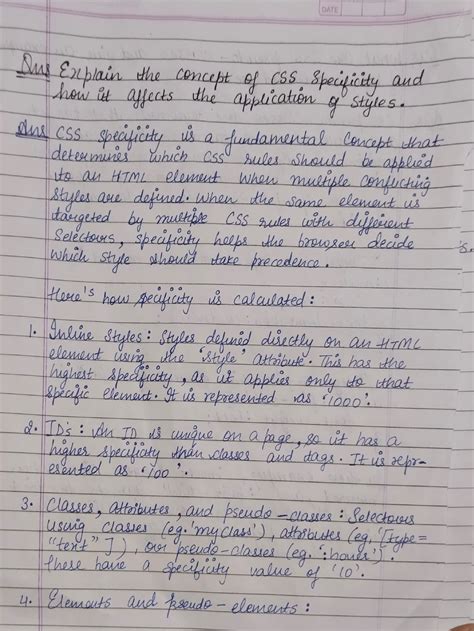 DATE
Ques Explain the concept of CSS Specificity and
how it affects the application of styles.
Ans CSS specificity is a fundamental concept that
determines which CSS rules should be applied
to an HTML element when multiple conflicting
styles are defined. When the same element is
targeted by multiple CSS rules with different
Selectors, specificity helps the browser decide
which style should take precedence.
Here's how specificity is calculated:
1. Inline Styles: Styles defined directly on an HTML
element using the 'style' attribute. This has the
highest specificity, as it applies only to that
specific element. It is represented as '1000'.
2. ID's: An ID is unique on a page, so it has a
higher specificity than classes and tags. It is repr-
esented as '100'.
3. Classes, attributes, and pseudo-classes: Selectors
using classes (eg. 'myClass'), attributes (eg. '[type=
"text"]), or pseudo-classes (eg. ':hover').
These have a specificity value of '10'.
4. Elements and pseudo-elements: